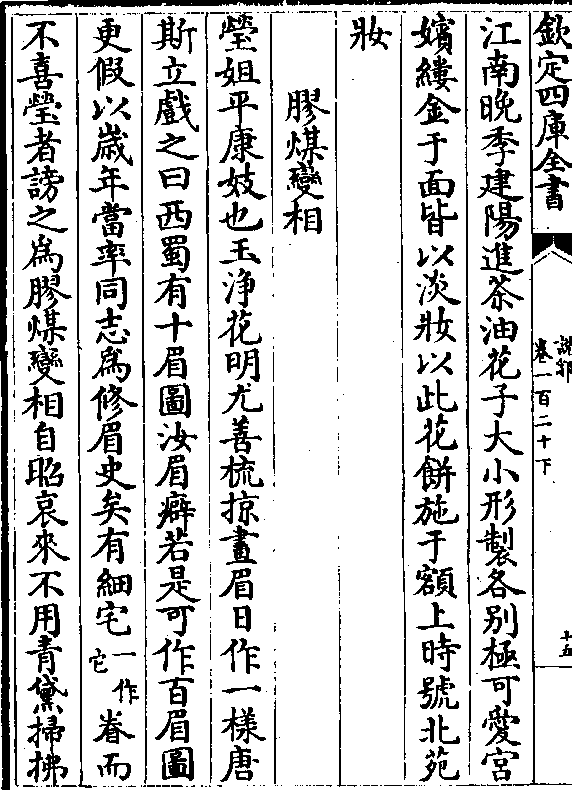 欽定四庫全書
說郛
卷一百二十下
十五
江南晚季建陽進茶油花子大小形製各別極可愛宮
嬪縷金于面皆以淡妝以此花餅施于額上時號北苑
妝
膠煤變相
瑩姐平康妓也玉淨花明尤善梳掠畫眉日作一樣唐
斯立戲之曰西蜀有十眉圖汝眉癖若是可作百眉圖
更假以歲年當率同志為修眉史矣有細宅一作它眷而
不喜瑩者謗之為膠煤變相自昭哀來不用青黛掃拂